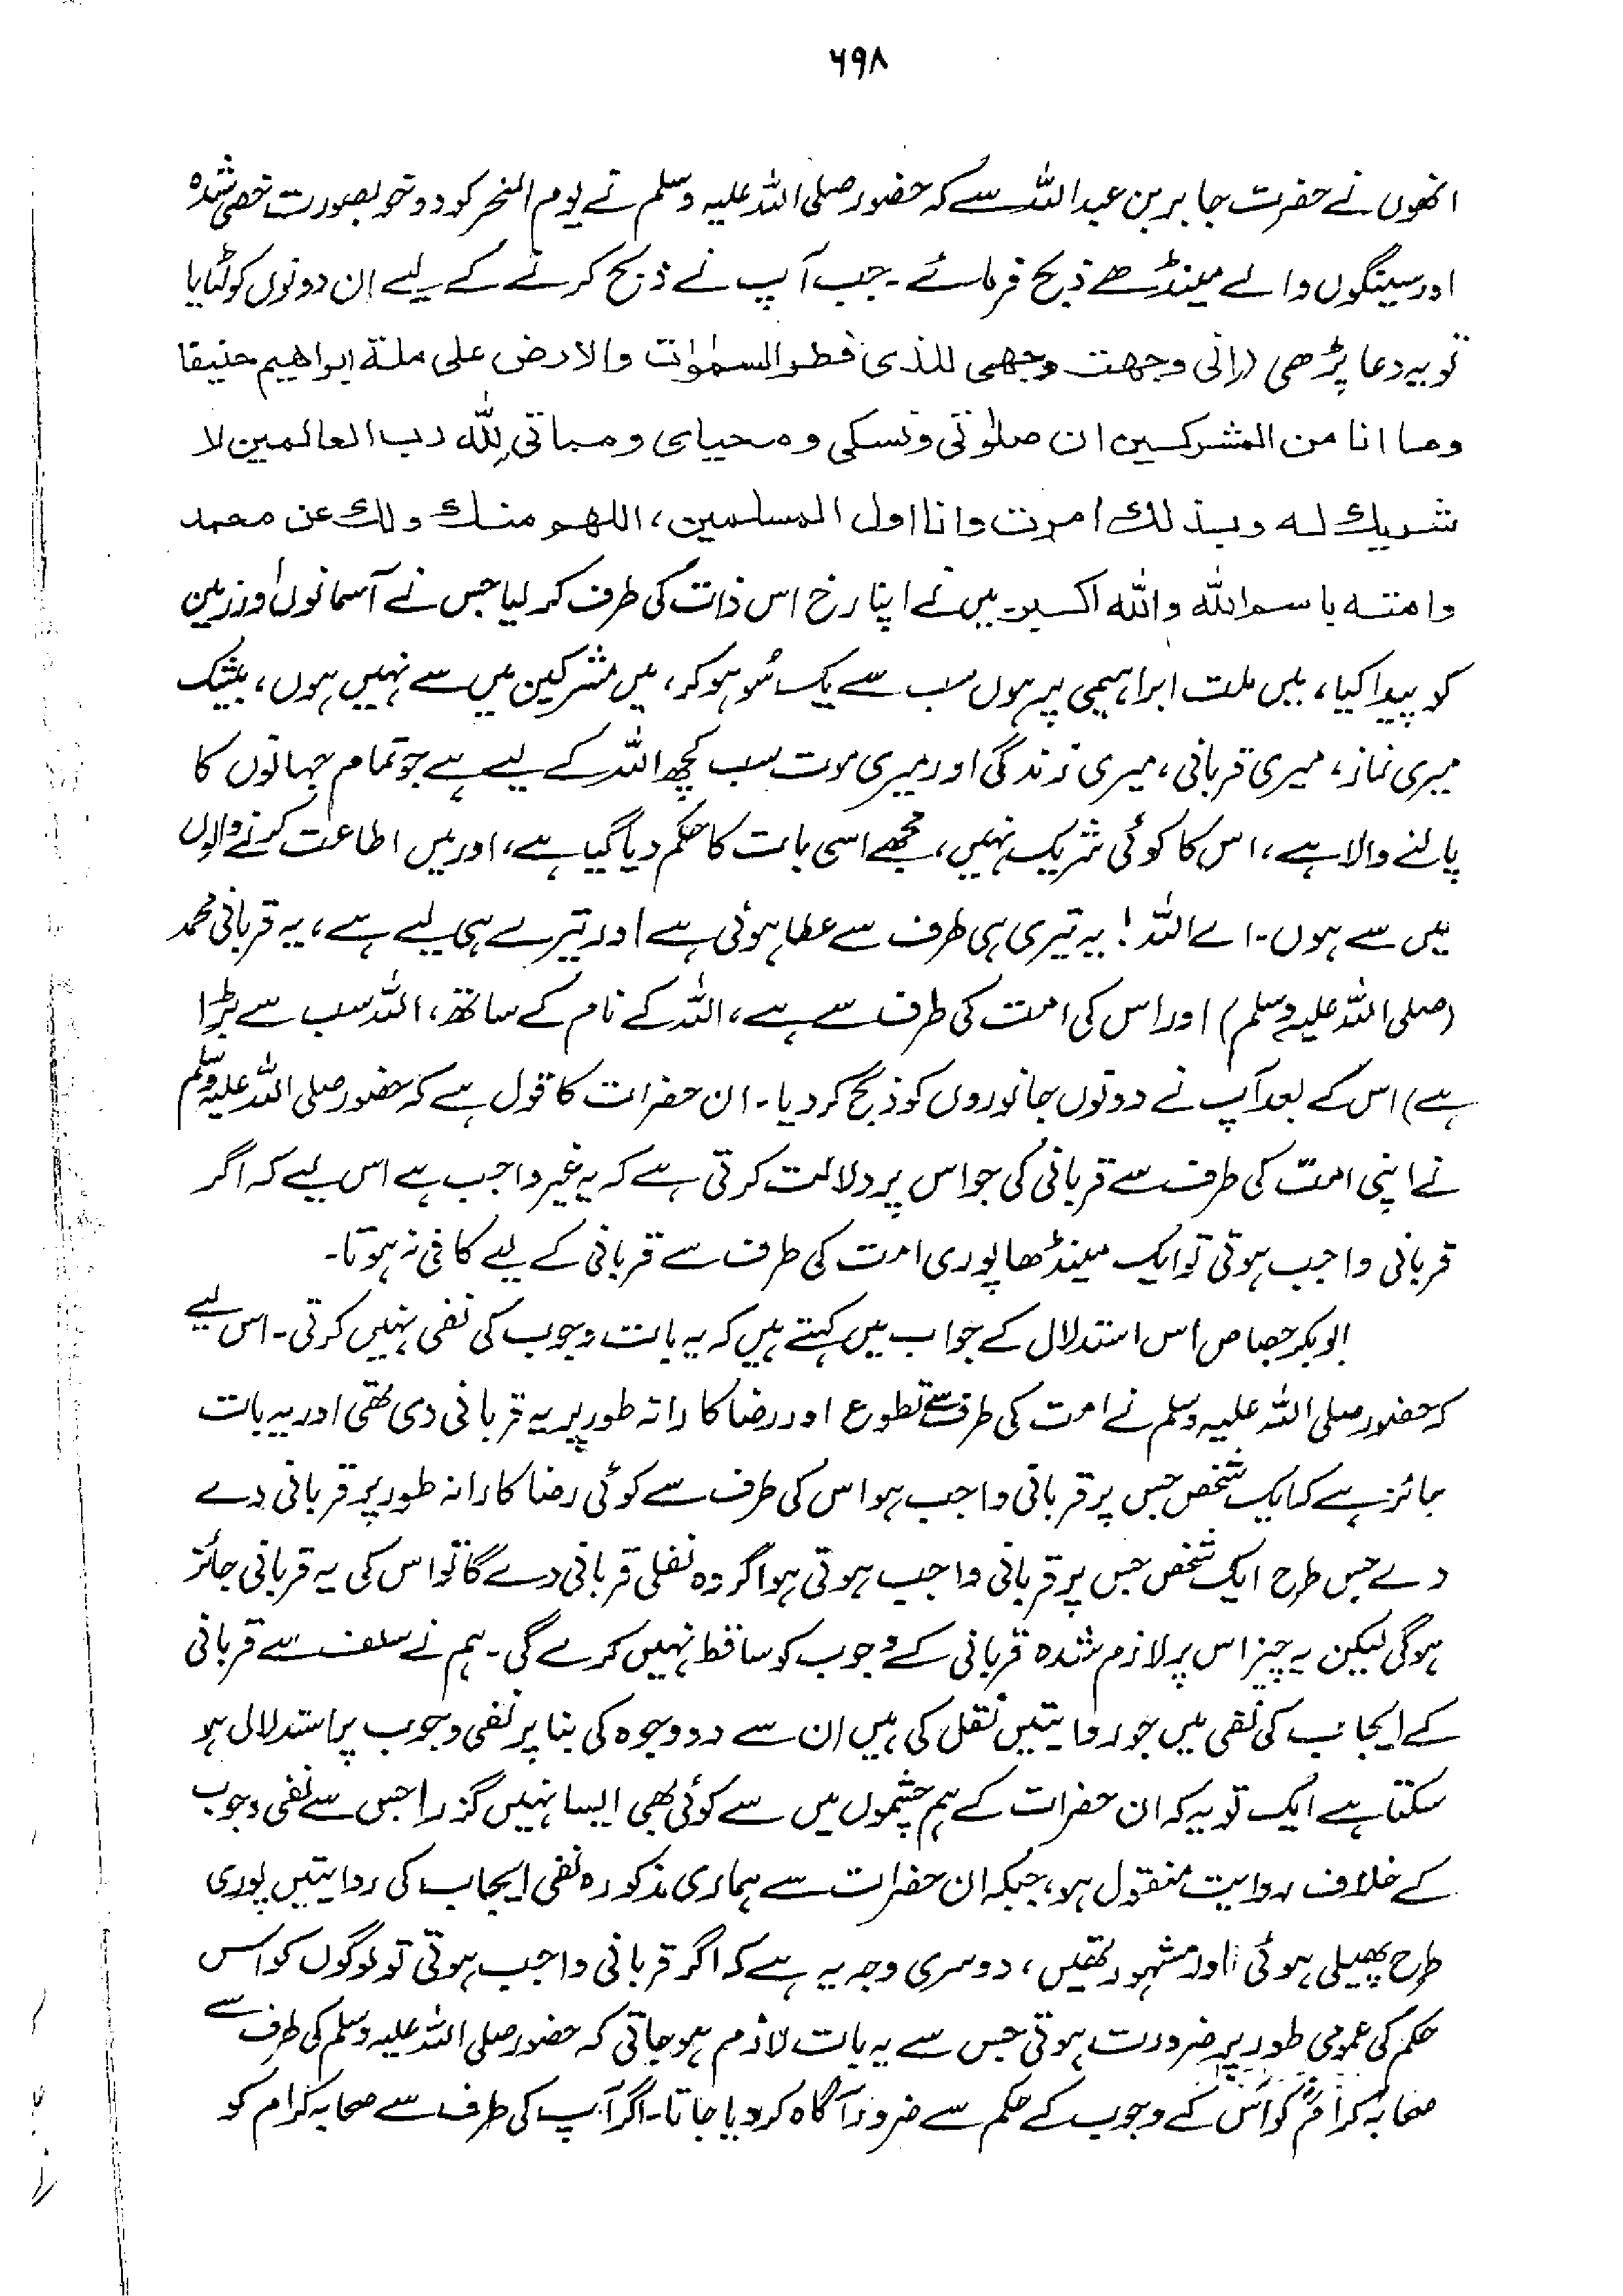 ۶۹۸
انھوں نے حضرت جابر بن عبداللہ سے کہ حضور صلی اللہ علیہ وسلم نے یوم النحر کو دو خوبصورت خصی شدہ
اور سینگوں والے مینڈھے ذبح فرمائے۔ جب آپ نے ذبح کرنے کے لیے ان دونوں کو لٹایا
تو یہ دعا پڑھی (انی وجھت وجھی للذی فطر السمٰوٰت والارض علی ملۃ ابراھیم حنیفا
وما انا من المشرکین ان صلوٰتی ونسکی ومحیای ومماتی للہ رب العالمین لا
شریک لہ وبذلک امرت وانا اول المسلمین، اللھم منک ولک عن محمد
وامتہ باسم اللہ واللہ اکبر۔ میں نے اپنا رخ اس ذات کی طرف کر لیا جس نے آسمانوں اور زمین
کو پیدا کیا، میں ملت ابراہیمی پر ہوں سب سے یک سُو ہو کر، میں مشرکین میں سے نہیں ہوں، بیشک
میری نماز، میری قربانی، میری زندگی اور میری موت سب کچھ اللہ کے لیے ہے جو تمام جہانوں کا
پالنے والا ہے، اس کا کوئی شریک نہیں، مجھے اسی بات کا حکم دیا گیا ہے، اور میں اطاعت کرنے والوں
میں سے ہوں۔ اے اللہ! یہ تیری ہی طرف سے عطا ہوئی ہے اور تیرے ہی لیے ہے، یہ قربانی محمد
(صلی اللہ علیہ وسلم) اور اس کی امت کی طرف سے ہے، اللہ کے نام کے ساتھ، اللہ سب سے بڑا
ہے) اس کے بعد آپ نے دونوں جانوروں کو ذبح کر دیا۔ ان حضرات کا قول ہے کہ حضور صلی اللہ علیہ وسلم
نے اپنی امت کی طرف سے قربانی کی جو اس پر دلالت کرتی ہے کہ یہ غیر واجب ہے اس لیے کہ اگر
قربانی واجب ہوتی تو ایک مینڈھا پوری امت کی طرف سے قربانی کے لیے کافی نہ ہوتا۔
ابوبکر جصاص اس استدلال کے جواب میں کہتے ہیں کہ یہ بات وجوب کی نفی نہیں کرتی۔ اس لیے
کہ حضور صلی اللہ علیہ وسلم نے امت کی طرف سے تطوع اور رضا کارانہ طور پر یہ قربانی دی تھی اور یہ بات
جائز ہے کہ ایک شخص جس پر قربانی واجب ہو اس کی طرف سے کوئی رضا کارانہ طور پر قربانی دے
دے جس طرح ایک شخص جس پر قربانی واجب ہوتی ہو اگر وہ نفلی قربانی دے گا تو اس کی یہ قربانی جائز
ہوگی لیکن یہ چیز اس پر لازم شدہ قربانی کے وجوب کو ساقط نہیں کرے گی۔ ہم نے سلف سے قربانی
کے ایجاب کی نفی میں جو روایتیں نقل کی ہیں ان سے دو وجوہ کی بنا پر نفی وجوب پر استدلال ہو
سکتا ہے ایک تو یہ کہ ان حضرات کے ہم چشموں میں سے کوئی بھی ایسا نہیں گزرا جس سے نفی وجوب
کے خلاف روایت منقول ہو، جبکہ ان حضرات سے ہماری مذکورہ نفی ایجاب کی روایتیں پوری
طرح پھیلی ہوئی اور مشہور تھیں، دوسری وجہ یہ ہے کہ اگر قربانی واجب ہوتی تو لوگوں کو اس
حکم کی عمومی طور پر ضرورت ہوتی جس سے یہ بات لازم ہو جاتی کہ حضور صلی اللہ علیہ وسلم کی طرف سے
صحابہ کرامؓ کو اس کے وجوب کے حکم سے ضرور آگاہ کر دیا جاتا۔ اگر آپ کی طرف سے صحابہ کرام کو